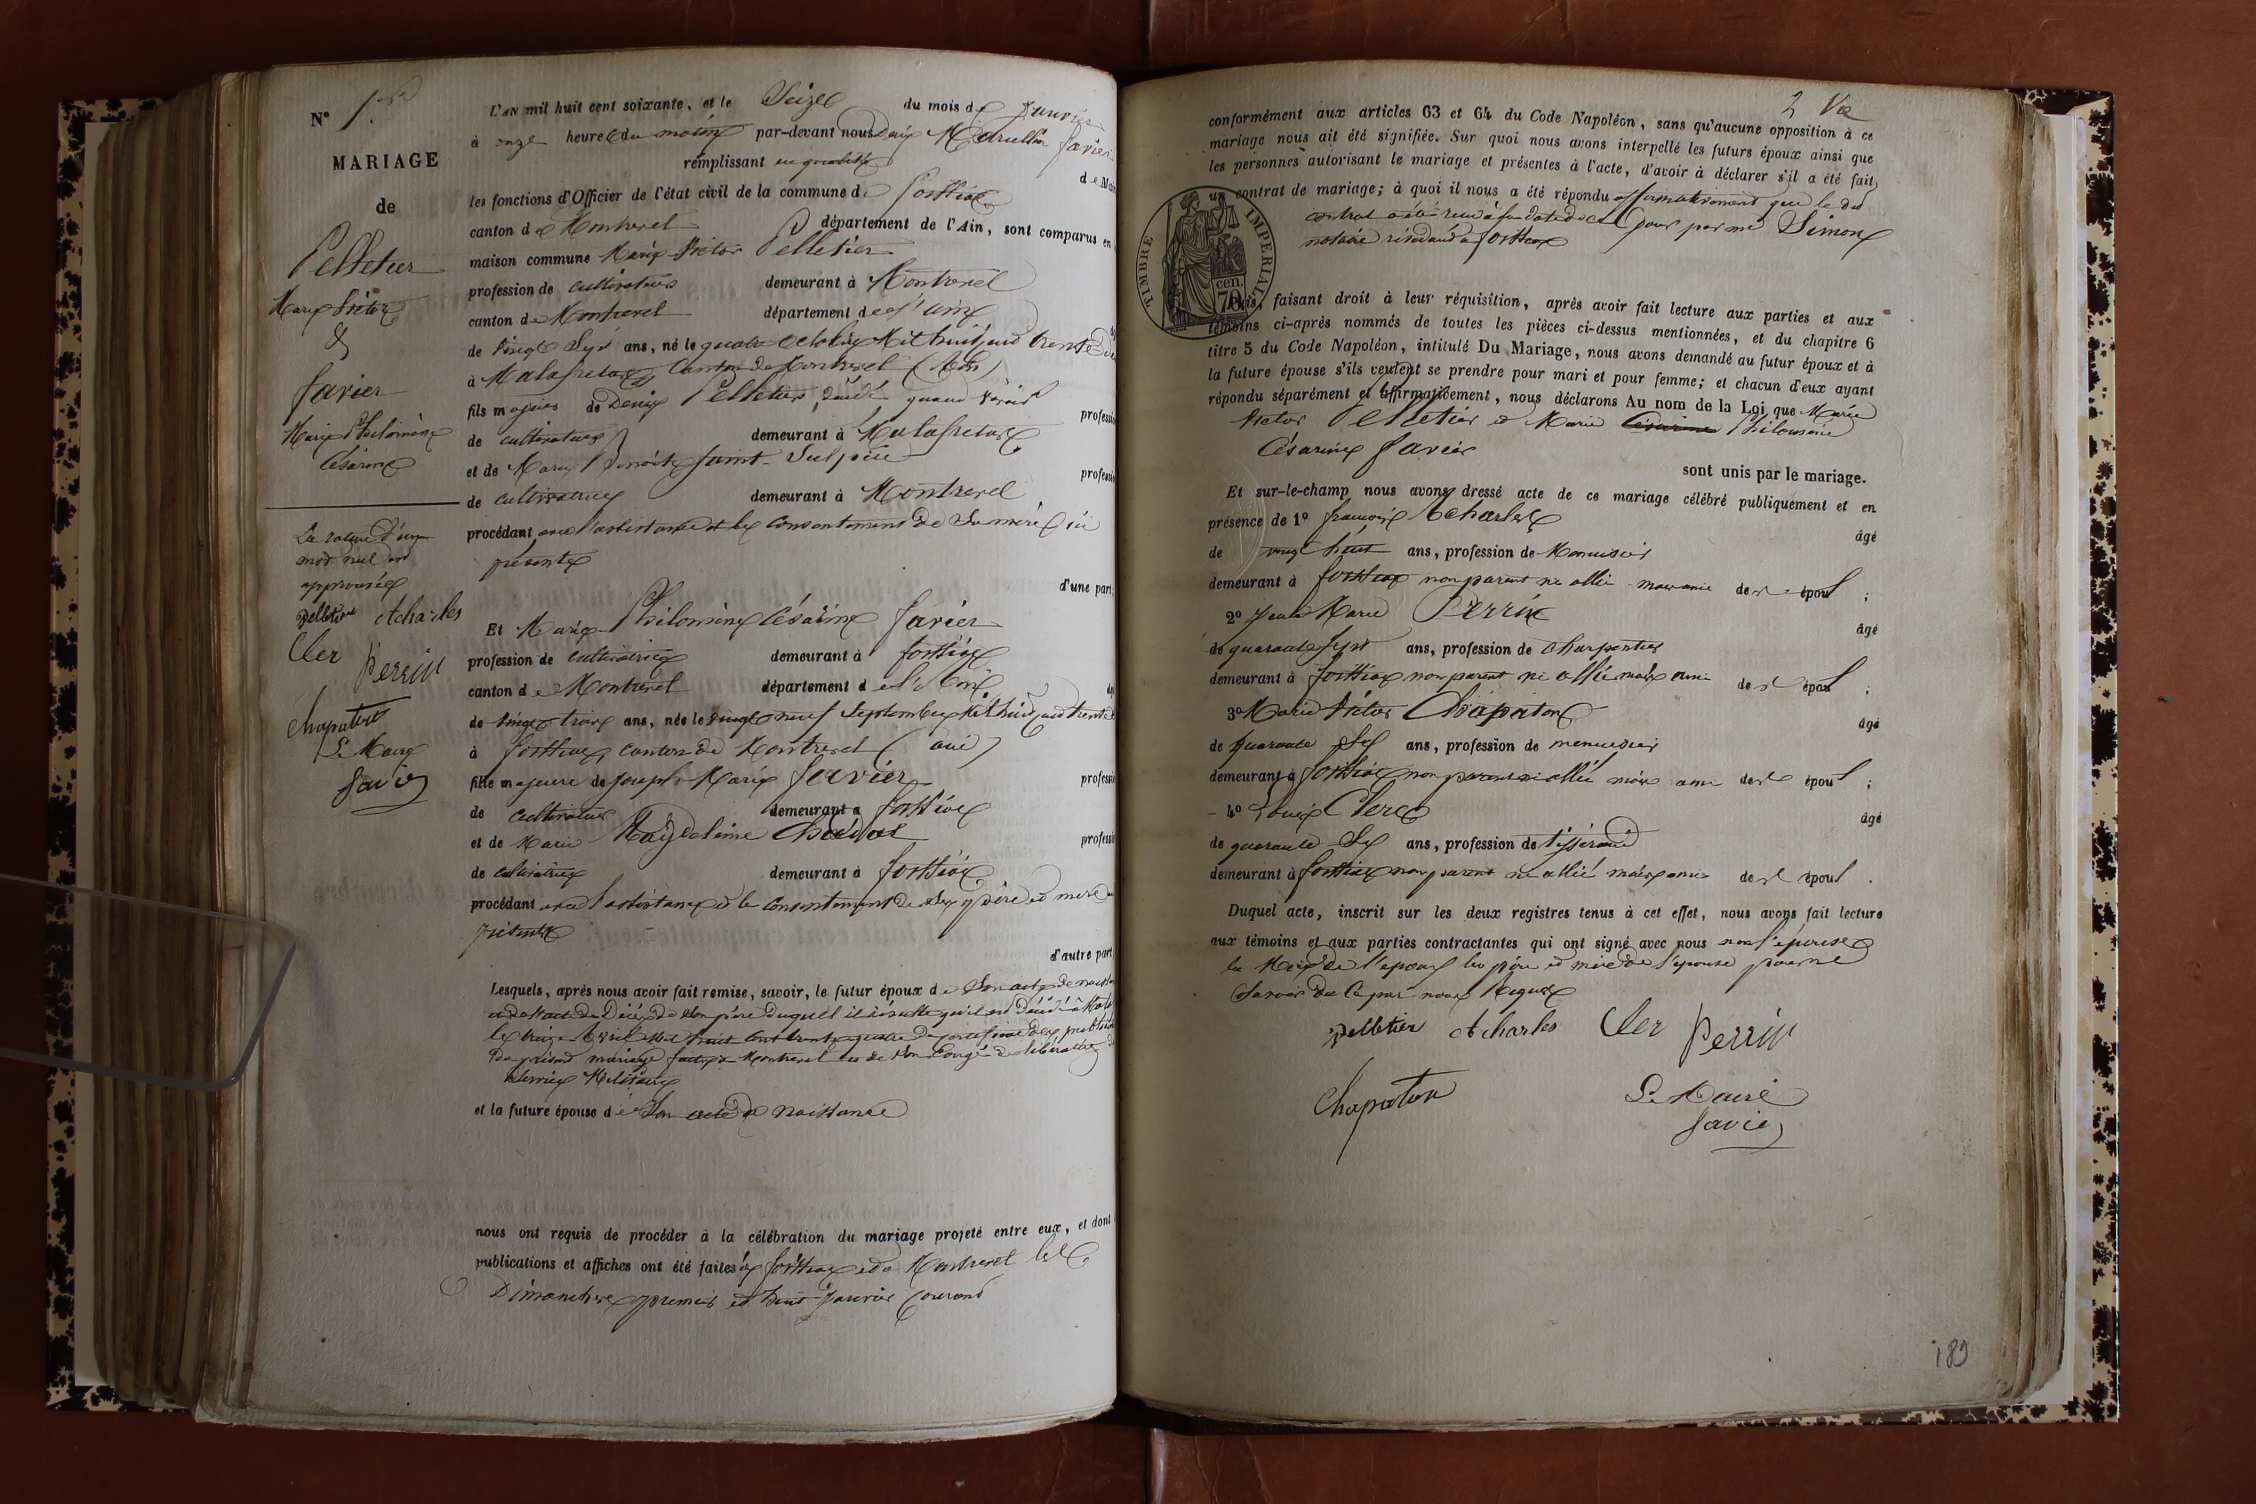 N° 1er
MARIAGE
de
Pelletier
Marie Victor
&
Favier
Marie Philomène
Césarine
La rature d'un
mot nul est
approuvée
Pelletier Acharles
Cler Perrin
Chapaton
Le Maire
Favier
L'AN mil huit cent soixante, et le Seize du mois de Janvier
à onze heures du matin par-devant nous Favier
remplissant en qualité de Maire
les fonctions d'Officier de l'état civil de la commune de Foissiat
canton de Montrevel département de l'Ain, sont comparus en
maison commune Marie Victor Pelletier
profession de cultivateur demeurant à Montrevel
canton de Montrevel département de l'ain
de Vingt Sept ans, né le quatre Octobre Mil huit cent trente deux
à Malafretaz Canton de Montrevel (Ain)
fils majeur de Denis Pelletier, décédé quand vivait profession
de cultivateur demeurant à Malafretaz
et de Marie Benoite Saint-Sulpice profession
de cultivatrice demeurant à Montrevel
procédant avec l'assistance et le consentement de Sa mère ici
présente
d'une part,
Et Marie Philomène Césarine Favier
profession de cultivatrice demeurant à Foissiat
canton de Montrevel département de l'Ain
de Vingt trois ans, née le vingt neuf Septembre Mil huit cent trente
à Foissiat, canton de Montrevel (ain)
fille majeure de Joseph Marie Favier profession
de cultivateur demeurant à Foissiat
et de Marie Magdeleine profession
de cultivatrice demeurant à Foissiat
procédant avec l'assistance et le consentement de Ses père et mère
présents
d'autre part
Lesquels, après nous avoir fait remise, savoir, le futur époux de Son acte de naissance
et de l'acte de Décès de Son père duquel il résulte qu'il est Décédé à
le Avril mil huit cent trente quatre du certificat des publications
du présent mariage faites à Montrevel et de Son Congé de libération du
Service Militaire
et la future épouse de Son acte de naissance
nous ont requis de procéder à la célébration du mariage projeté entre eux, et dont
publications et affiches ont été faites à Foissiat et à Montrevel les
Dimanches premier et huit Janvier Courant
2
conformément aux articles 63 et 64 du Code Napoléon, sans qu'aucune opposition à ce
mariage nous ait été signifiée. Sur quoi nous avons interpellé les futurs époux ainsi que
les personnes autorisant le mariage et présentes à l'acte, d'avoir à déclarer s'il a été fait
un contrat de mariage; à quoi il nous a été répondu affirmativement que le dit
contrat a été reçu à la date de ce jour par me Simon
notaire résidant à Foissiat
TIMBRE IMPERIAL
70 cen.
Puis, faisant droit à leur réquisition, après avoir fait lecture aux parties et aux
témoins ci-après nommés de toutes les pièces ci-dessus mentionnées, et du chapitre 6
titre 5 du Code Napoléon, intitulé Du Mariage, nous avons demandé au futur époux et à
la future épouse s'ils veulent se prendre pour mari et pour femme; et chacun d'eux ayant
répondu séparément et affirmativement, nous déclarons Au nom de la Loi que Marie
Victor Pelletier et Marie Césarine Philomène
Césarine Favier
sont unis par le mariage.
Et sur-le-champ nous avons dressé acte de ce mariage célébré publiquement et en
présence de 1° françois Acharles âgé
de vingt huit ans, profession de Menuisier
demeurant à Foissiat non parent ni allié mais ami des époux ;
2° Jean Marie Perrin âgé
de quarante Sept ans, profession de Charpentier
demeurant à Foissiat non parent ni allié mais ami des époux ;
3° Marie Victor Chapaton âgé
de quarante Six ans, profession de menuisier
demeurant à Foissiat non parent ni allié mais ami des époux ;
4° Louis Clerc âgé
de quarante Six ans, profession de tisserand
demeurant à Foissiat non parent ni allié mais ami des époux .
Duquel acte, inscrit sur les deux registres tenus à cet effet, nous avons fait lecture
aux témoins et aux parties contractantes qui ont signé avec nous non l'épouse
la Mère de l'époux les père et mère de l'épouse pour ne
Savoir de ce par nous Requis
Pelletier Acharles Cler Perrin
Chapaton Le Maire
Favier
189